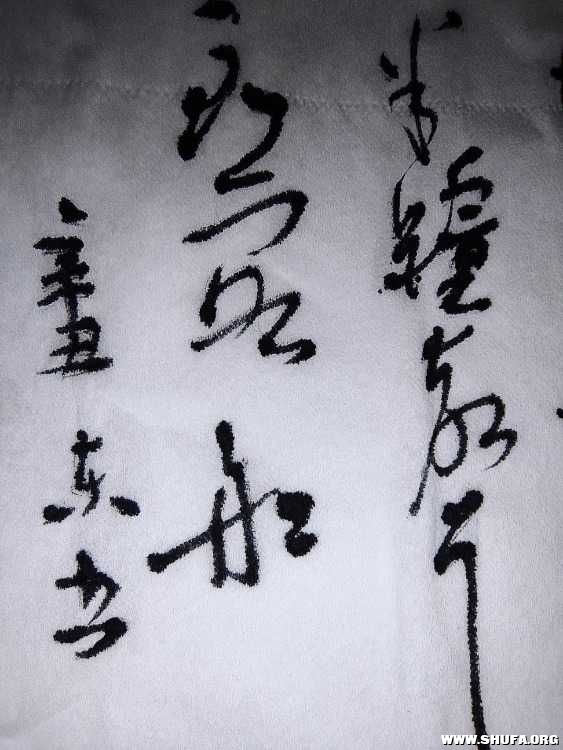 半鐘聲
到客船
辛丑东书
WWW.SHUFA.ORG